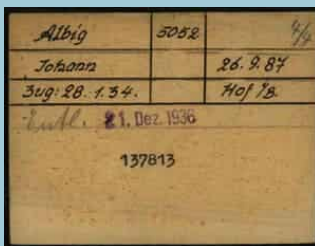 Albig 5052 4/4
Johann 26.9.87
Zug: 28.1.34. Hof /B.
Entl. 21. Dez. 1936
137813